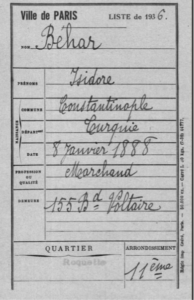 Ville de PARIS LISTE de 1936.
NOM Béhar
PRÉNOMS Isidore
NAISSANCE
COMMUNE Constantinople
DÉPARTEMt Turquie
DATE 8 Janvier 1888
PROFESSION OU QUALITÉ Marchand
DEMEURE 155 Bd Voltaire
QUARTIER ARRONDISSEMENT
Roquette 11ème